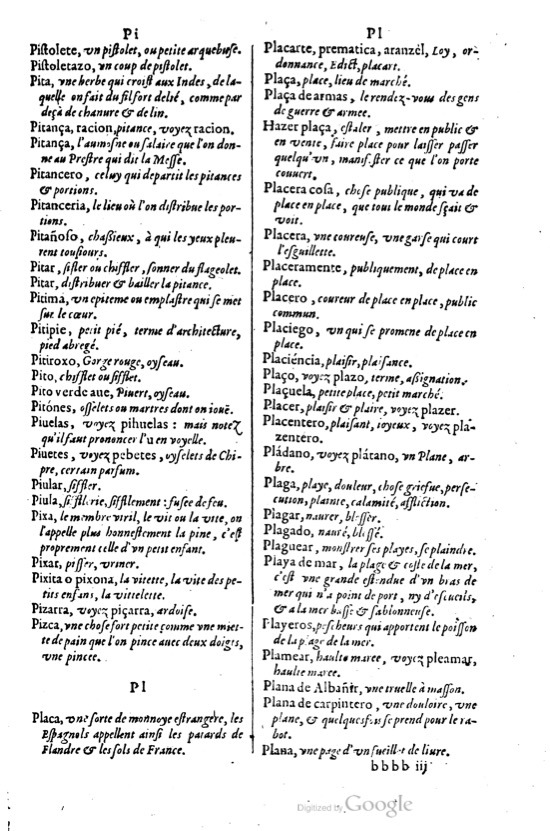 Pi
Pistolete, vn pistolet, ou petite arquebuse.
Pistoletazo, vn coup de pistolet.
Pita, vne herbe qui croist aux Indes, de la-
quelle on fait du fil fort delié, comme par
deçà de chanure & de lin.
Pitança, racion, pitance, voyez racion.
Pitança, l'aumosne ou salaire que l'on don-
ne au Prestre qui dit la Messe.
Pitancero, celuy qui departit les pitances
& portions.
Pitanceria, le lieu où l'on distribue les por-
tions.
Pitañoso, chaßieux, à qui les yeux pleu-
rent tousiours.
Pitar, sifler ou chiffler, sonner du flageolet.
Pitar, distribuer & bailler la pitance.
Pitima, vn epiteme ou emplastre qui se met
sur le cœur.
Pitipie, petit pié, terme d'architecture,
pied abregé.
Pitiroxo, Gorge rouge, oyseau.
Pito, chifflet ou sifflet.
Pito verde aue, Piuert, oyseau.
Pitónes, osselets ou martres dont on iouë.
Piuelas, voyez pihuelas : mais notez
qu'il faut prononcer l'u en voyelle.
Piuetes, voyez pebetes, oyselets de Chi-
pre, certain parfum.
Piular, siffler.
Piula, sifflerie, sifflement : fusee de feu.
Pixa, le membre viril, le vit ou la vite, on
l'appelle plus honnestement la pine, c'est
proprement celle d'vn petit enfant.
Pixar, pisser, vriner.
Pixita o pixona, la vitette, la vite des pe-
tits enfans, la vittelette.
Pizarra, voyez piçarra, ardoise.
Pizca, vne chose fort petite comme vne miet-
te de pain que l'on pince auec deux doigts,
vne pincee.
Pl
Placa, vne sorte de monnoye estrangere, les
Espagnols appellent ainsi les patards de
Flandre & les sols de France.
Pl
Placarte, prematica, aranzèl, Loy, or-
donnance, Edict, placart.
Plaça, place, lieu de marché.
Plaça de armas, le rendez-vous des gens
de guerre & armee.
Hazer plaça, estaler, mettre en public &
en vente, faire place pour laisser passer
quelqu'vn, manifester ce que l'on porte
couuert.
Placera cosa, chose publique, qui va de
place en place, que tout le monde sçait &
voit.
Placera, vne coureuse, vne garse qui court
l'esguillette.
Placeramente, publiquement, de place en
place.
Placero, coureur de place en place, public
commun.
Placiego, vn qui se promene de place en
place.
Placiéncia, plaisir, plaisance.
Plaço, voyez plazo, terme, assignation.
Plaçuela, petite place, petit marché.
Placer, plaisir & plaire, voyez plazer.
Placentero, plaisant, ioyeux, voyez pla-
zentero.
Pládano, voyez plátano, vn Plane, ar-
bre.
Plaga, playe, douleur, chose griefue, perse-
cution, plainte, calamité, affliction.
Plagar, naurer, blesser.
Plagado, nauré, blessé.
Plaguear, monstrer ses playes, se plaindre.
Playa de mar, la plage & coste de la mer,
c'est vne grande estendue d'vn bias de
mer qui n'a point de port, ny d'escueils,
& a la mer basse & sablonneuse.
Playeros, pescheurs qui apportent le poisson
de la plage de la mer.
Plamear, haulte maree, voyez pleamar,
haulte maree.
Plana de Albañir, vne truelle à masson.
Plana de carpintero, vne douloire, vne
plane, & quelquesfois se prend pour le ra-
bot.
Plana, vne page d'vn fueillet de liure.
bbbb iij
Digitized by Google